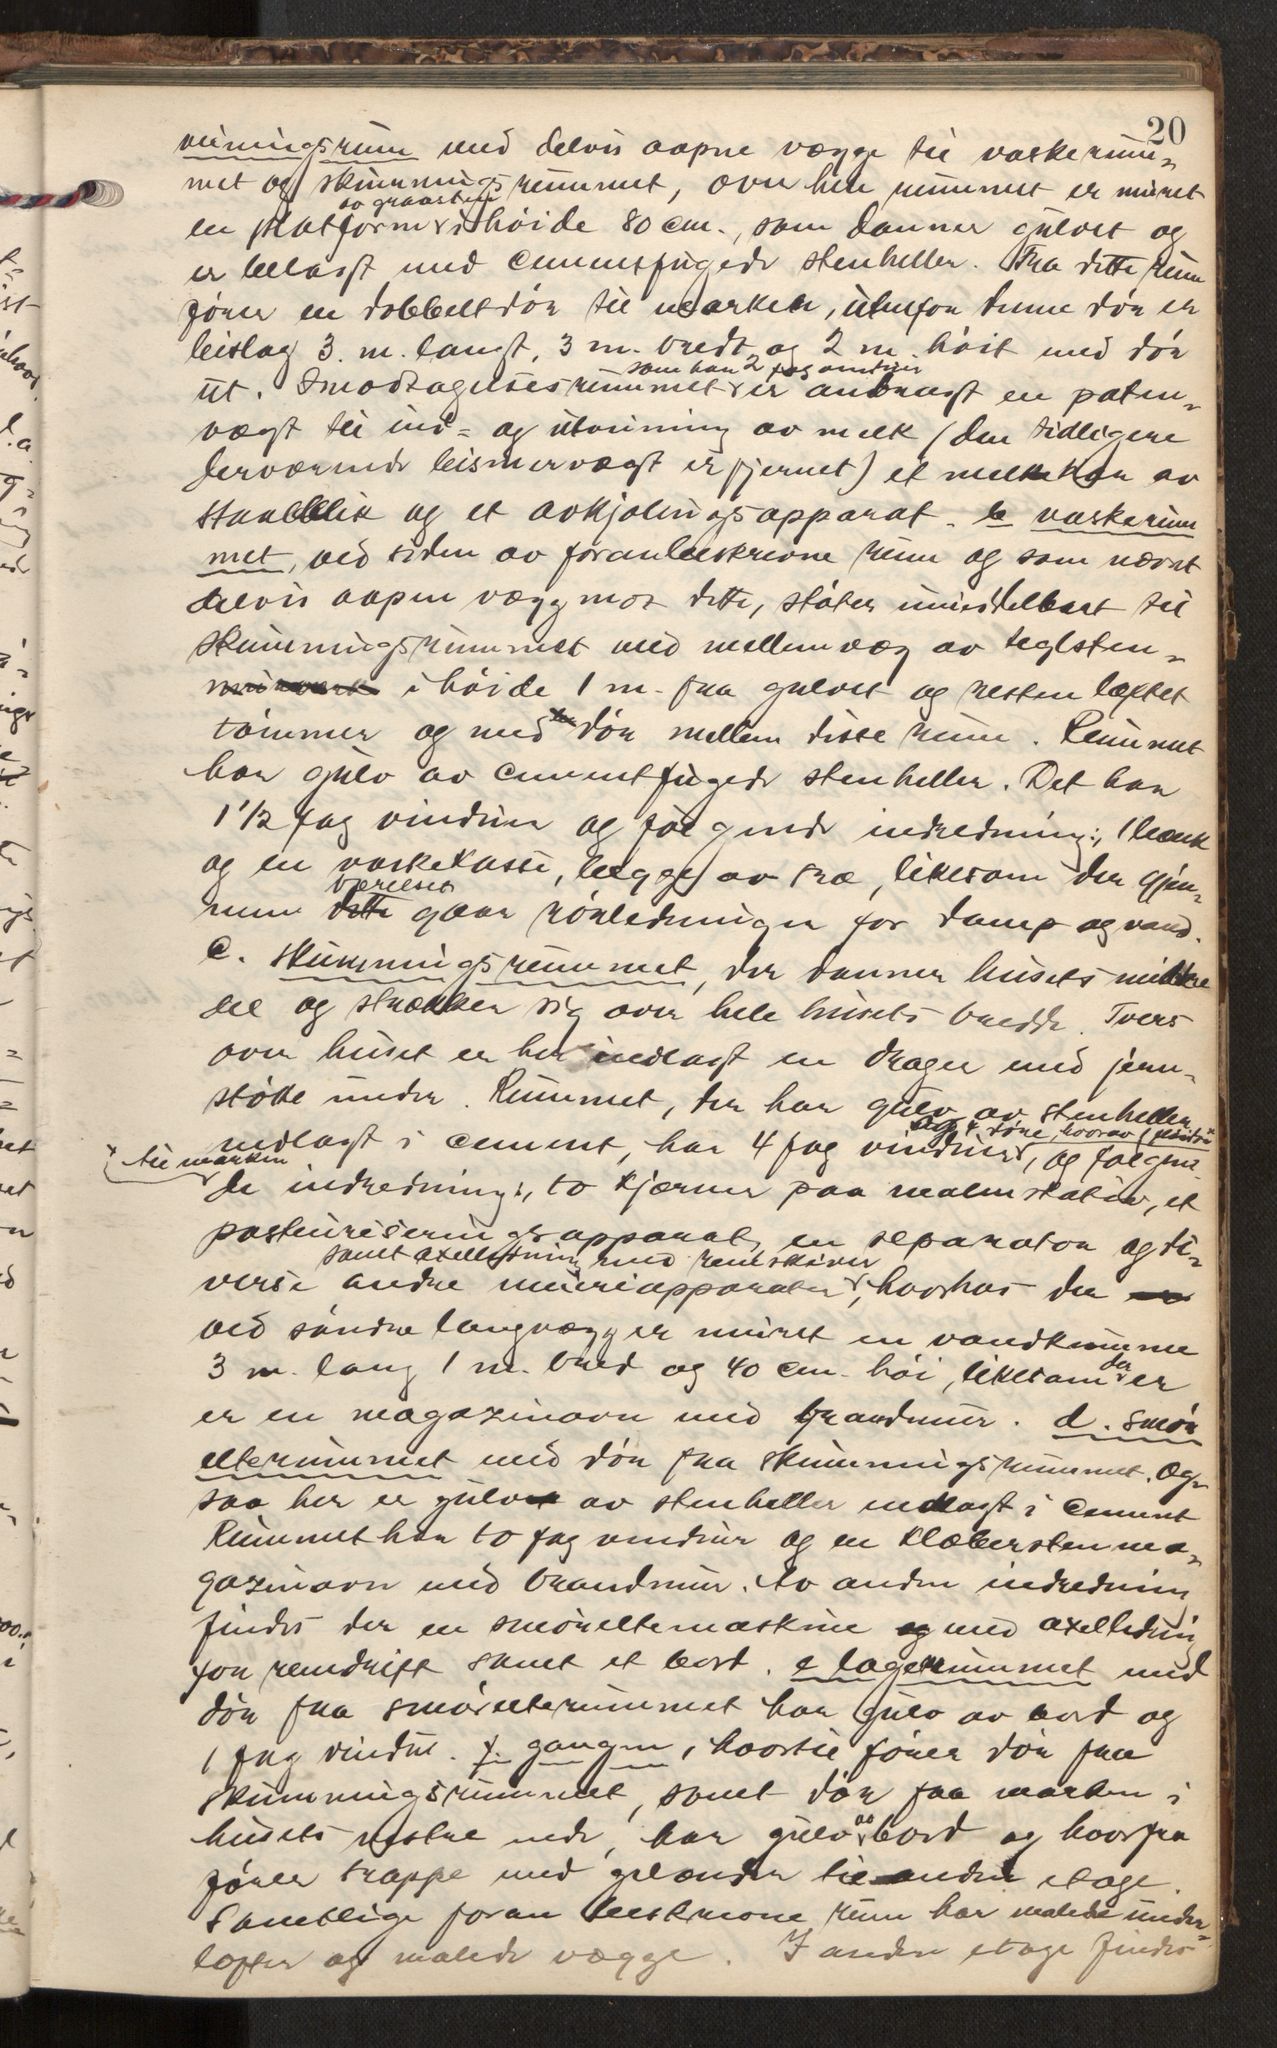 20
veiningsrum med delvis aapne vægge til vaskerum-
met og skumningsrummet, over hele rummet er muret
av graasten
en platform i høide 80 cm., som danner gulvet og
er belagt med cementfugede stenheller. Fra dette rum
fører en dobbelt dør til marken, utenfor denne dør er
bislag 3 m. langt, 3 m. bredt og 2 m. høit med dør
som har 2 fag vinduer
ut. I modtagelsesrummet er anbragt en paten-
vægt til ind- og utveining av melk (den tidligere
derværende bismervægt er fjernet) et melkekar av
staalblik og et avkjølingsapparat. b vaskerum
met, ved siden av foranbeskrevne rum og som nævnt
delvis aapen væg mot dette, støter umiddelbart til
skumningsrummet med mellemvæg av teglsten-
murværk i høide 1 m. fra gulvet og resten laftet
tømmer og med dør mellem disse rum. Rummet
har gulv av cementfugede stenheller. Det har
1 1/2 fag vinduer og følgende indredning:, 1 bænk
og en vaskekasse, begge av træ, likesom der gjen-
værelset
nem dette gaar rørledninger for damp og vand.
C. skumningsrummet, der danner husets midtre
del og strækker sig over hele husets bredde. Tvers
over huset er her indlagt en drager med jern-
støtte under. Rummet, der har gulv av stenheller
og 4 døre, hvorav 1 fløidør
nedlagt i cement, har 4 fag vinduer, og følgen-
til marken
de indredning:, to kjærner paa malmstativ, et
pasteuriseringsapparat, en separator og di-
samt axelledning med remskiver
verse andre meieriapparater, hvorhos der
ved søndre langvæg er muret en vandkumme
3 m. lang 1 m. bred og 40 cm. høi, likesom der er
er en magazinovn med brandmur. d. smør
elterummet med dør fra skumningsrummet. Og-
saa her er gulvet av stenheller nedlagt i cement
Rummet har to fag vinduer og en klæbersten ma-
gazinovn med brandmur. Av anden indredning
findes der en smøreltemaskine og med axelledning
for remdrift samt et bord. e lagerrummet med
dør fra smørelterummet har gulv av bord og
1 fag vindu. f. gangen, hvortil fører dør fra
skumningsrummet, samt dør fra marken i
husets vestre ende, har gulv av bord og hvorfra
fører trappe med gelænder til anden etage.
Samtlige foran beskrevne rum har malede under-
lofter og malede vægge. I anden etage findes